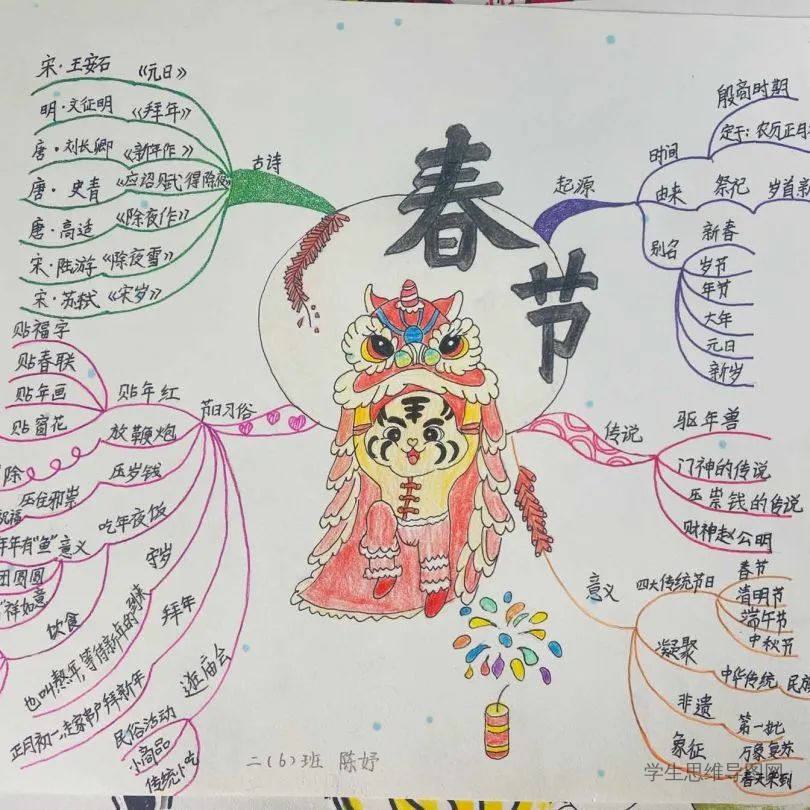 春节
古诗
宋·王安石 《元日》
明·文征明 《拜年》
唐·刘长卿 《新年作》
唐·史青 《应诏赋得除夜》
唐·高适 《除夜作》
宋·陆游 《除夜雪》
宋·苏轼 《宋岁》
节日习俗
贴年红
贴福字
贴春联
贴年画
贴窗花
放鞭炮
除
压岁钱
压住邪祟
祝福
吃年夜饭
年年有"鱼" 意义
团圆圆
祥如意
饮食
守岁
也叫熬年,等待新年的到来
拜年
正月初一,走家串户拜新年
逛庙会
民俗活动
小商品
传统小吃
起源
时间
殷商时期
定于:农历正月
由来 祭祀 岁首
别名
新春
岁节
年节
大年
元日
新岁
传说
驱年兽
门神的传说
压祟钱的传说
财神赵公明
意义
四大传统节日
春节
清明节
端午节
中秋节
凝聚
中华传统 民族
非遗
第一批
象征
万象复苏
春天来到
二(6)班 陈妤
学生思维导图网